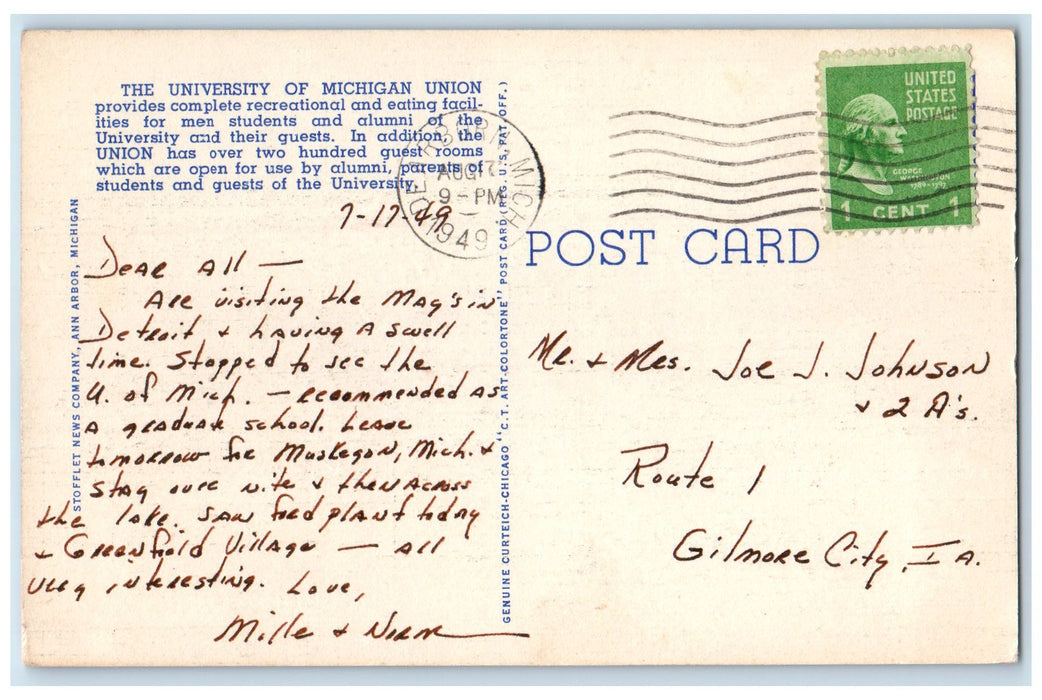 THE UNIVERSITY OF MICHIGAN UNION
provides complete recreational and eating facil-
ities for men students and alumni of the
University and their guests. In addition, the
UNION has over two hundred guest rooms
which are open for use by alumni, parents of
students and guests of the University.
STOFFLET NEWS COMPANY, ANN ARBOR, MICHIGAN
7-17-49
Dear All —
Are visiting the Mag's in
Detroit + having a swell
time. Stopped to see the
U. of Mich. — recommended as
a graduate school. Leave
tomorrow for Muskegon, Mich. +
stay over nite + then across
the lake. Saw Ford plant today
+ Greenfield Village — all
very interesting. Love,
Mille + Norm
GENUINE CURTEICH-CHICAGO "C.T. ART-COLORTONE" POST CARD (REG. U.S. PAT. OFF.)
DEARBORN, MICH.
AUG 17
9 - PM
1949
UNITED
STATES
POSTAGE
GEORGE
WASHINGTON
1789-1797
1 CENT 1
POST CARD
Mr. + Mrs. Joe J. Johnson
+ 2 A's.
Route 1
Gilmore City, Ia.